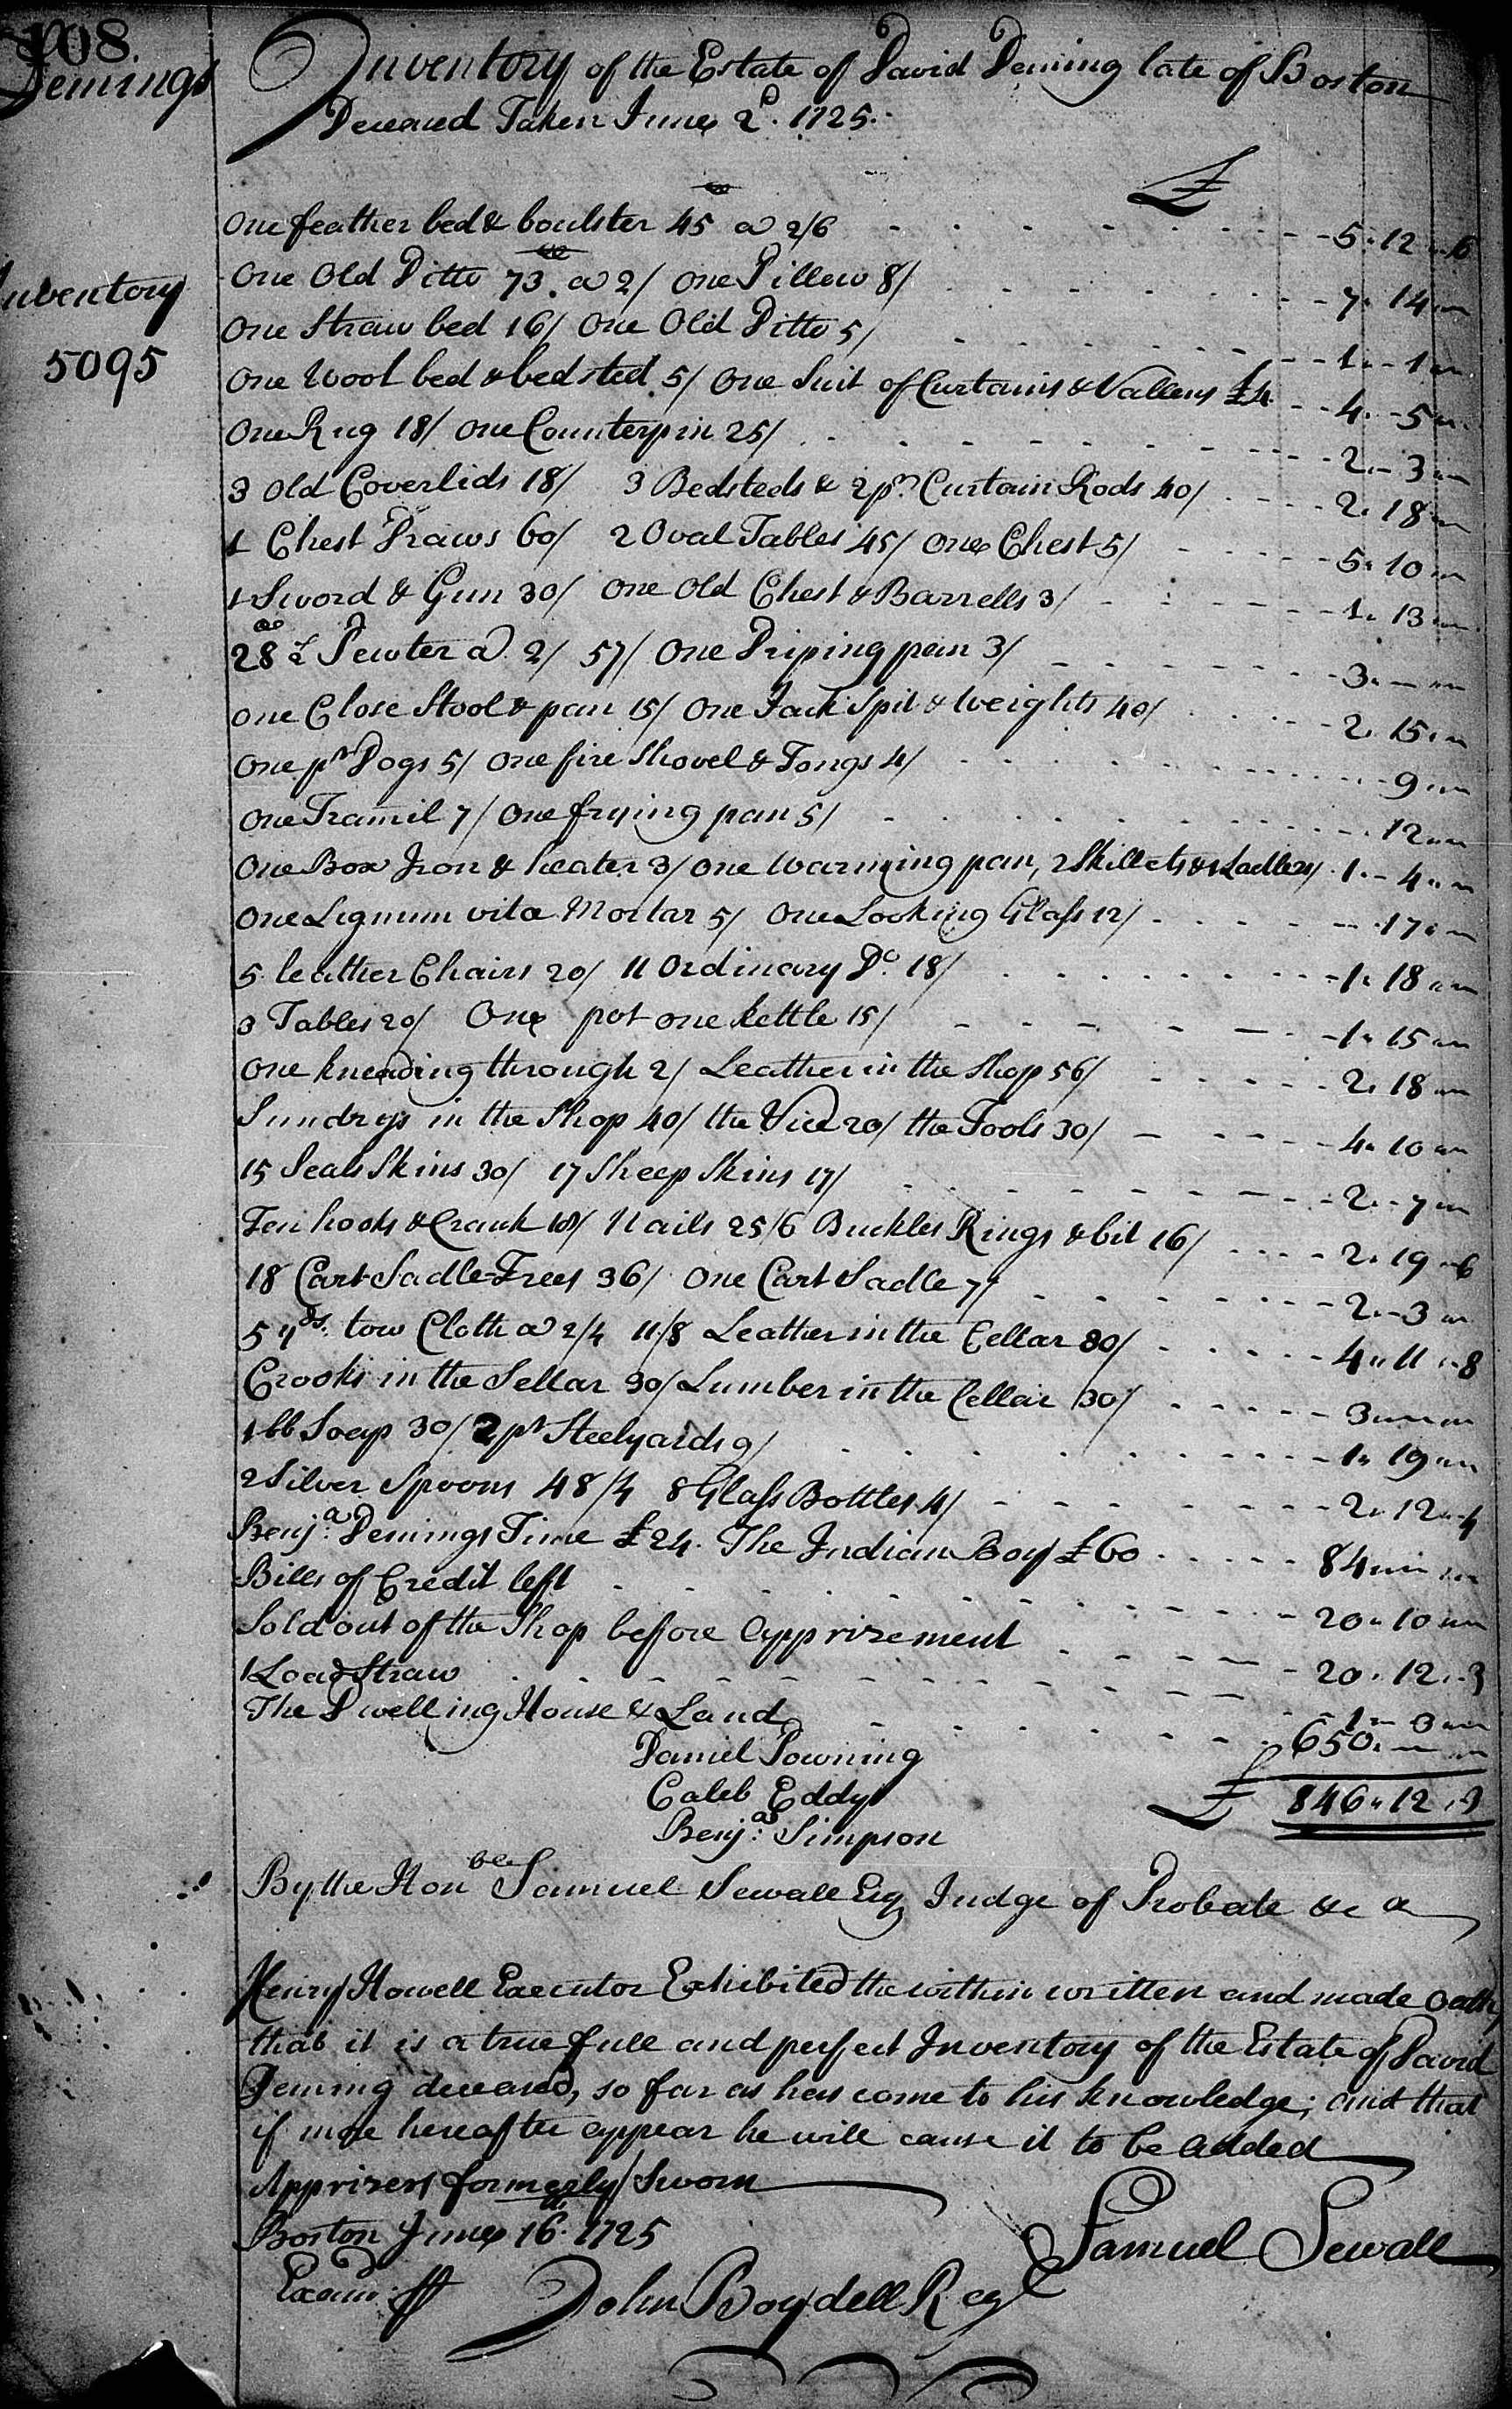 108.
Demings
Inventory of the Estate of David Deming late of Boston
Deceased Taken June 2d. 1725.
£
Inventory
5095
One feather bed & boulster 45 a 2/6 5 " 12 " 6
One Old Ditto 73. a 2/ one Pillow 8/ 7 " 14 "
One Straw bed 16/ One Old Ditto 5/ 1 " 1 "
One Wool bed & bedsted 5/ One Suit of Curtains & Vallens £4 4 " 5 "
One Rug 18/ one Counterpin 25/ 2 " 3 "
3 Old Coverlids 18/ 3 Bedsteds & 2 pr Curtain Rods 40/ 2 " 18 "
1 Chest Draws 60/ 2 Oval Tables 45/ One Chest 5/ 5 " 10 "
1 Sword & Gun 30/ One Old Chest & Barrells 3/ 1 " 13 "
28 ½ Pewter a 2/ 57/ One Driping pan 3/ 3 " — "
One Close Stool & pan 15/ One Jack Spit & Weights 40/ 2 " 15 "
One pr Dogs 5/ One fire Shovel & Tongs 4/ 9 "
One Tramil 7/ One frying pan 5/ 12 "
One Box Iron & heater 3/ One Warming pan, 2 Skillets & 1 Ladle 21/ 1 " 4 "
One Lignum vitæ Mortar 5/ One Looking Glass 12/ 17 "
5 leather Chairs 20/ 11 Ordinary Do. 18/ 1 " 18 "
3 Tables 20/ One pot one kettle 15/ 1 " 15 "
One kneading through 2/ Leather in the Shop 56/ 2 " 18 "
Sundrys in the Shop 40/ the Vice 20/ the Tools 30/ 4 " 10 "
15 Seals Skins 30/ 17 Sheep Skins 17/ 2 " 7 "
Ten hooks & Crank 18/ Nails 25/6 Buckles Rings & bit 16/ 2 " 19 " 6
18 Cart Sadle-Trees 36/ One Cart Sadle 7/ 2 " 3 "
5 yds. tow Cloth a 2/4 11/8 Leather in the Cellar 80/ 4 " 11 " 8
Crooks in the Sellar 30/ Lumber in the Cellar 30/ 3 "
1 bb Soap 30/ 2 pr Steelyards 9/ 1 " 19 "
2 Silver Spoons 48/4 8 Glass Bottles 4/ 2 " 12 " 4
Benja. Demings Time £24. The Indian Boy £60 84 "
Bills of Credit left 20 " 10 "
Sold out of the Shop before Apprizement 20 " 12 " 3
1 Load Straw 1 " 0 "
The Dwelling House & Land 650 "
Daniel Powning
Caleb Eddy £ 846 " 12 " 3
Benja: Simpson
By the Honble Samuel Sewall Esq Judge of Probate &c a
Henry Howell Executor Exhibited the within written and made Oath
that it is a true full and perfect Inventory of the Estate of David
Deming deceased, so far as has come to his knowledge; and that
if more hereafter appear he will cause it to be added
Apprizers formerly Sworn
Boston June 16th. 1725 Samuel Sewall
Examd: John Boydell Regr